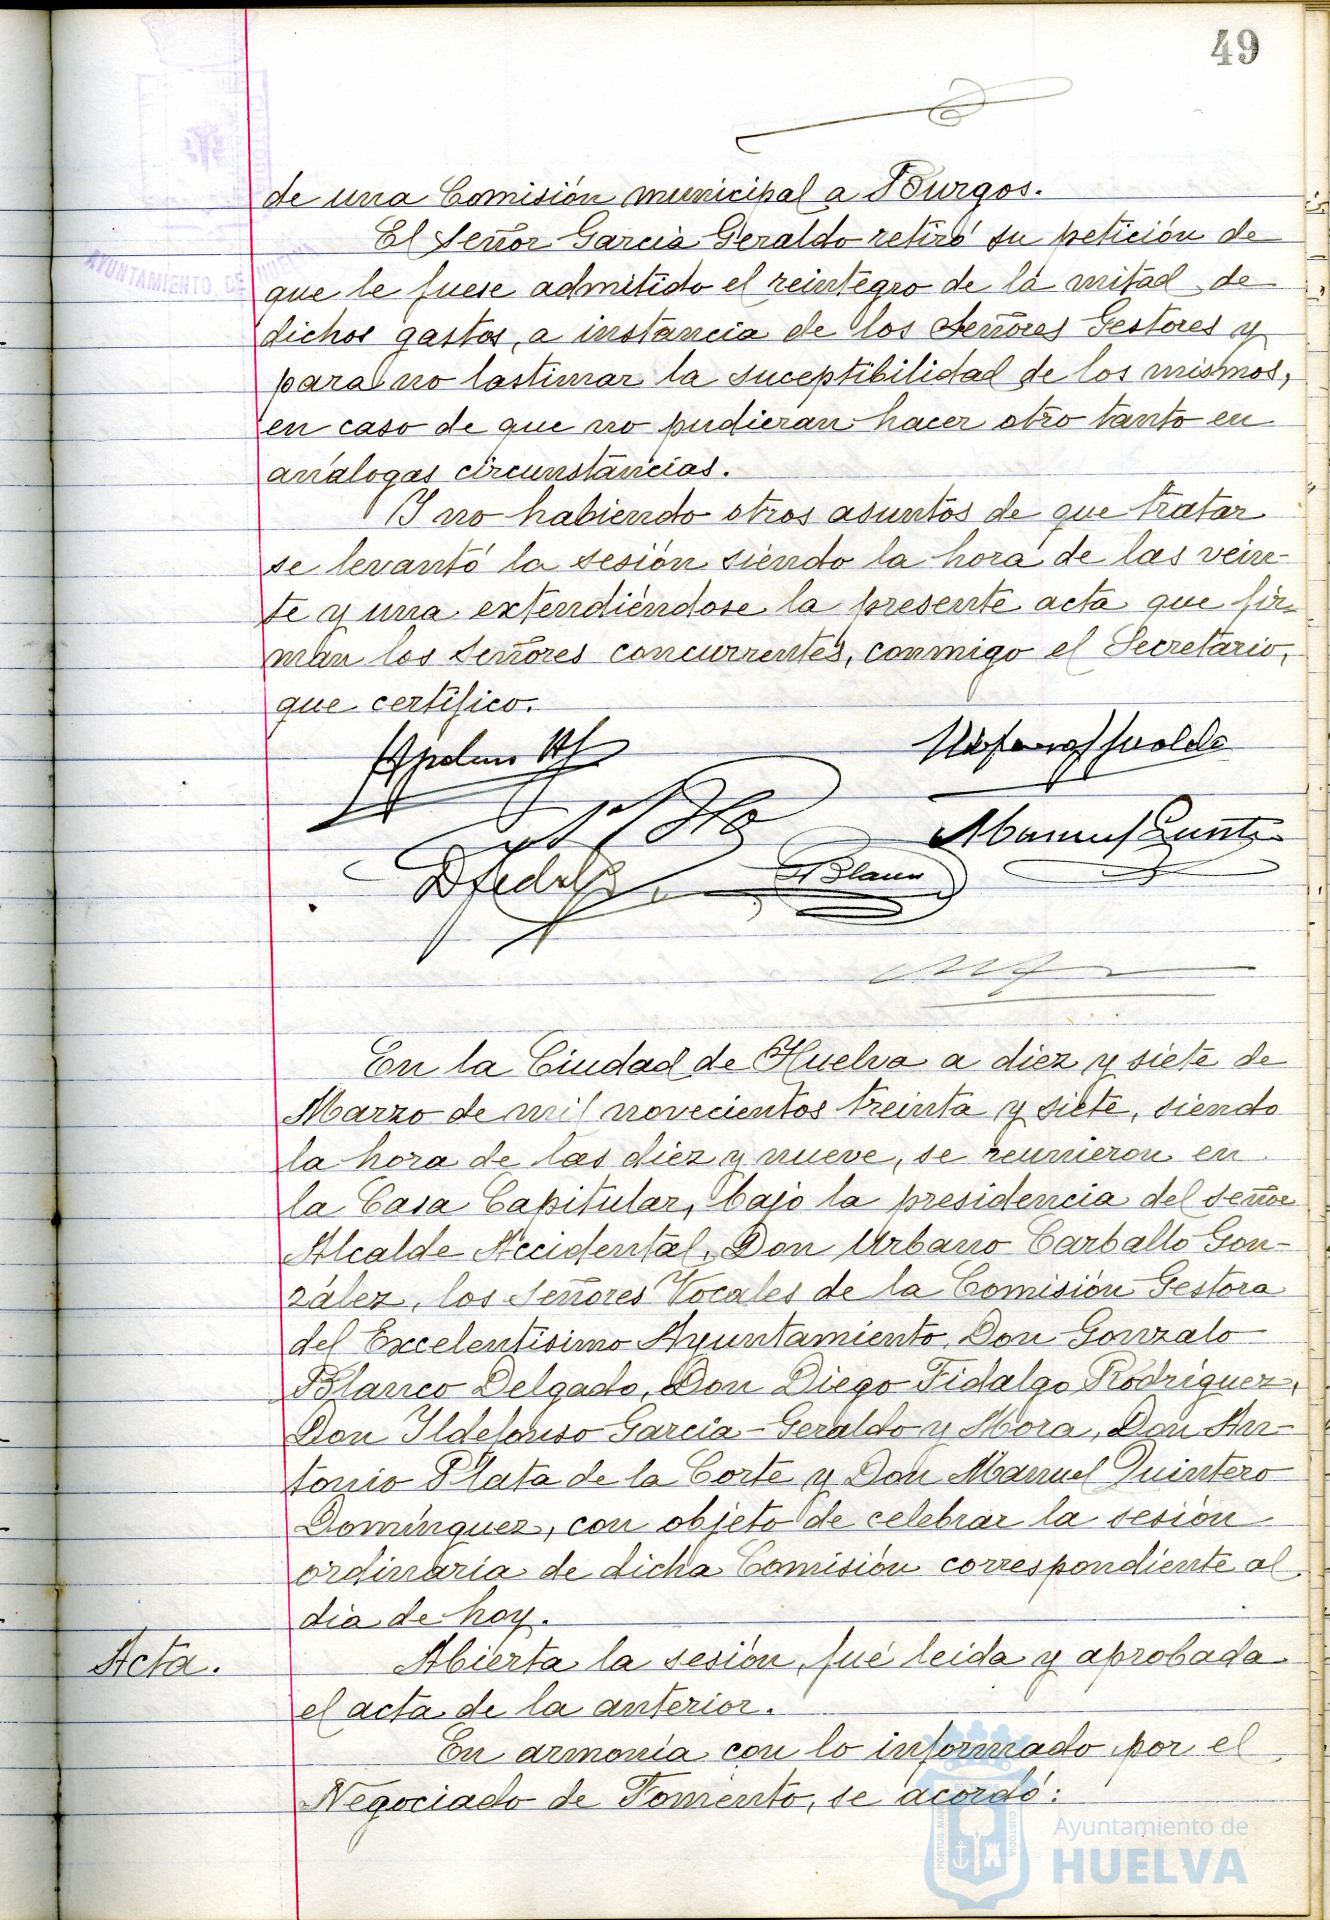 49
de una Comisión municipal a Burgos.
El Señor García Geraldo retiró su petición de
que le fuese admitido el reintegro de la mitad de
dichos gastos, a instancia de los Señores Gestores y
para no lastimar la suceptibilidad de los mismos,
en caso de que no pudieran hacer otro tanto en
análogas circunstancias.
Y no habiendo otros asuntos de que tratar
se levantó la sesión siendo la hora de las vein-
te y una extendiéndose la presente acta que fir-
man los Señores concurrentes, conmigo el Secretario,
que certifico.
Manuel Quinte
G Blanco
En la Ciudad de Huelva a diez y siete de
Marzo de mil novecientos treinta y siete, siendo
la hora de las diez y nueve, se reunieron en
la Casa Capitular, bajo la presidencia del señor
Alcalde Accidental, Don Urbano Carballo Gon-
zález, los Señores Vocales de la Comisión Gestora
del Excelentísimo Ayuntamiento, Don Gonzalo
Blanco Delgado, Don Diego Fidalgo Rodríguez,
Don Ildefonso García-Geraldo y Mora, Don An-
tonio Plata de la Corte y Don Manuel Quintero
Domínguez, con objeto de celebrar la sesión
ordinaria de dicha Comisión correspondiente al
día de hoy.
Acta. Abierta la sesión, fué leida y aprobada
el acta de la anterior.
En armonía con lo informado por el
Negociado de Fomento, se acordó:
AYUNTAMIENTO DE HUELVA
PORTUS MARIS
CUSTODIA
Ayuntamiento de
HUELVA